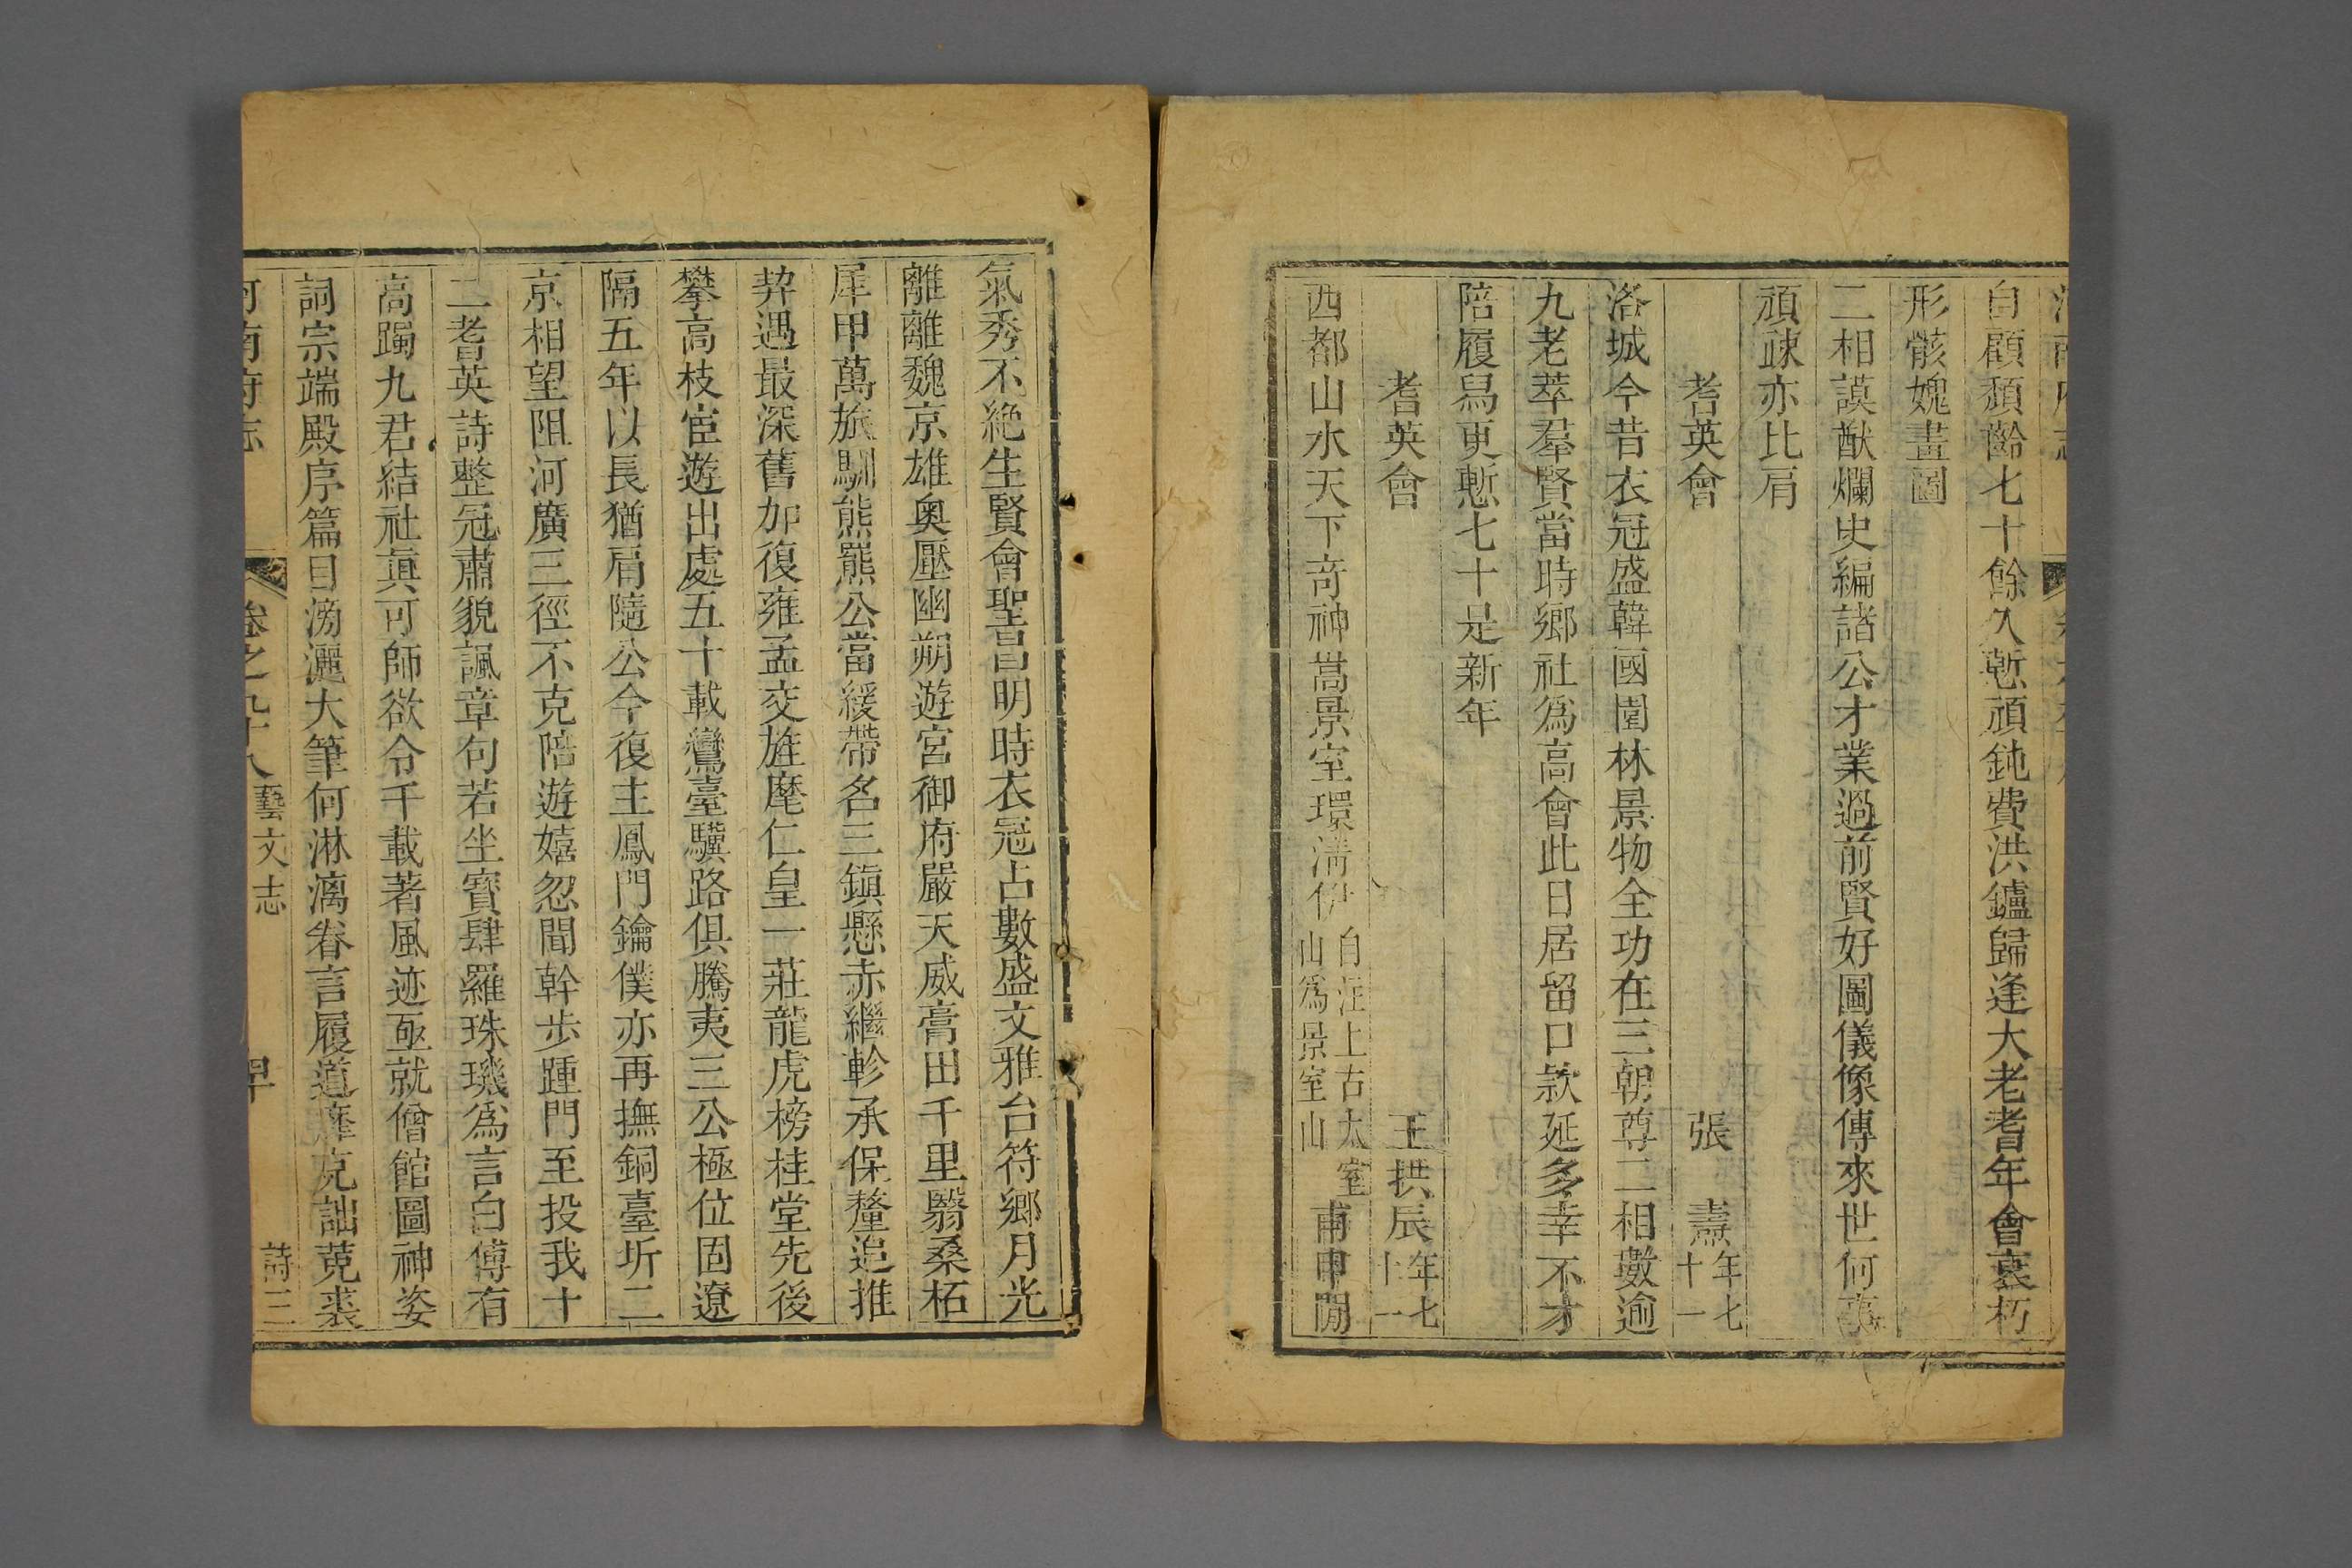 自顧頽齡七十餘久慙頑鈍費洪鑪歸逢大老耆年會衰朽
形骸媿畫圖
二相謨猷爛史編諸公才業過前賢好圖儀像傳來世何
頑疎亦比肩
耆英會 張 燾年七十一
洛城今昔衣冠盛韓國園林景物全功在三朝尊二相數逾
九老萃羣賢當時鄉社爲高會此日居留口欵延多幸不才
陪履舄更慙七十是新年
耆英會 王拱辰年七十一
西都山水天下奇神嵩景室環淸伊自注上古太室山爲景室山甫申閒
氣秀不絶生賢會聖昌明時衣冠占數盛文雅台符鄉月光
離離魏京雄奥壓幽朔遊宮御府嚴天威膏田千里翳桑柘
犀甲萬旅馴熊羆公當緩帶名三鎭懸赤繼軫承保釐追推
契遇最深舊加復雍孟交旌麾仁皇一莊龍虎榜桂堂先後
攀高枝宦遊出處五十載鸞臺驥路俱騰夷三公極位固遼
隔五年以長猶肩隨公今復主鳳門鑰僕亦再撫銅臺圻二
京相望阻河廣三徑不克陪遊嬉忽聞幹步踵門至投我十
二耆英詩整冠肅貌諷章句若坐寳肆羅珠璣爲言白傅有
高躅九君結社眞可師欲令千載著風迹亟就僧館圖神姿
詞宗端殿序篇目滂灑大筆何淋漓眷言履道裴克詘莵裘
河南府志 卷之九十八藝文志 詩三